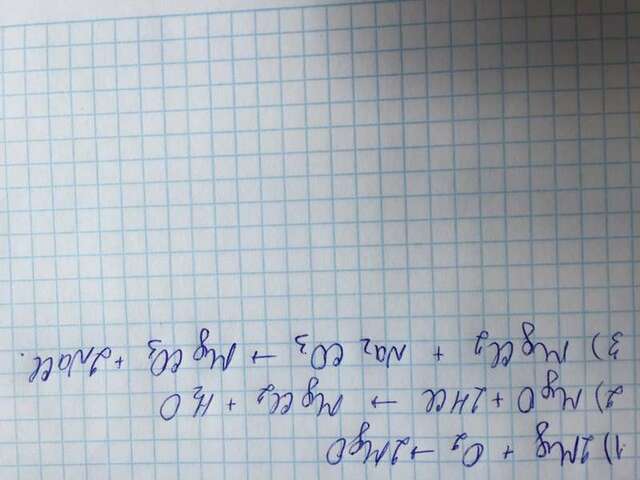 1) 2Mg + O₂ → 2MgO
2) MgO + 2HCl → MgCl₂ + H₂O
3) MgCl₂ + Na₂CO₃ → MgCO₃ + 2NaCl.